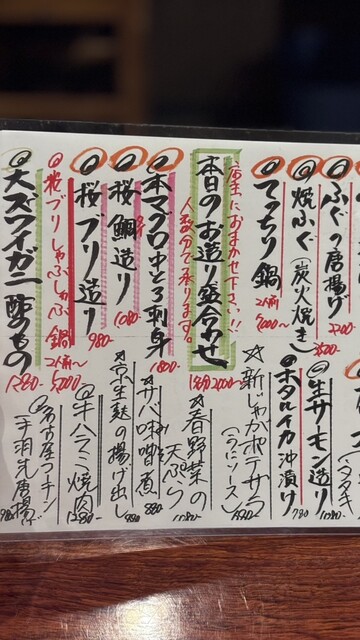 ふぐの唐揚げ
焼ふぐ(炭火焼き)
てっちり鍋 2人前 5000〜
店主におまかせ下さい!!
本日のお造り盛合わせ
人数分で承ります。
本マグロ中とろ刺身 1800-
桜鯛造り 1080-
桜ブリ造り 980-
桜ブリしゃぶしゃぶ鍋 2人前〜 5000-
大ズワイガニ酢のもの 1280-
タタキ
生サーモン造り 1080-
ホタルイカ沖漬け 780
☆新じゃがポテサラ(うにソース)
★春野菜の天ぷら 1080-
サバ味噌煮 880
☆京生麩の揚げ出し
牛ハラミ焼肉 1280-
名古屋コーチン手羽先唐揚げ